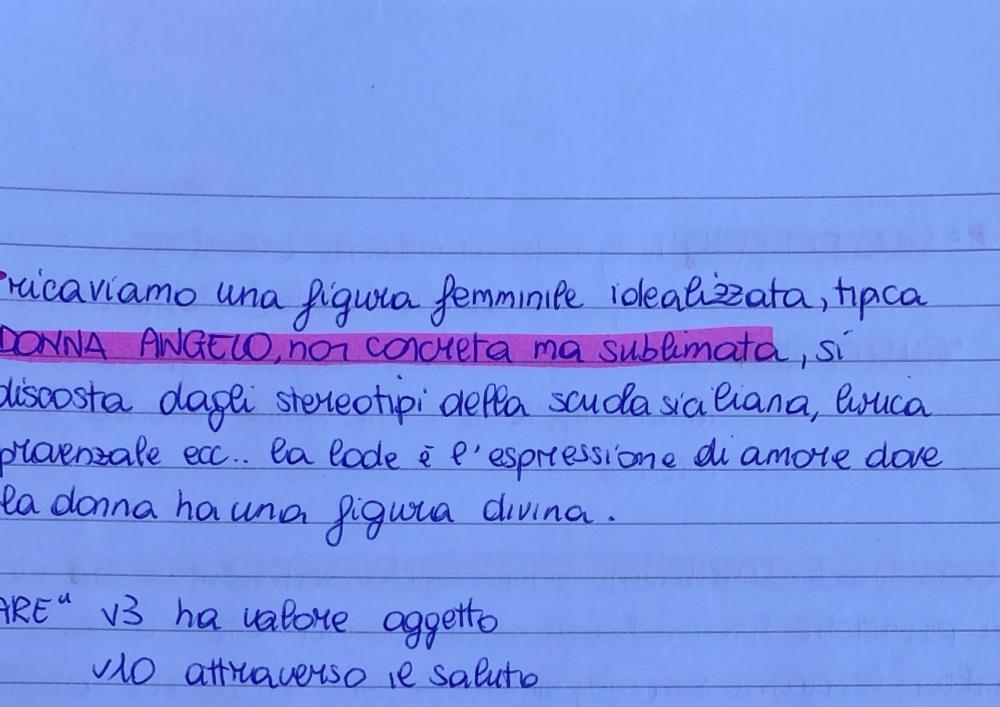 ricaviamo una figura femminile idealizzata, tipca
DONNA ANGELO, non concreta ma sublimata, si
discosta dagli stereotipi della scuola siciliana, lirica
provenzale ecc.. la lode è l'espressione di amore dove
la donna ha una figura divina.
ARE" v3 ha valore oggetto
v10 attraverso il saluto